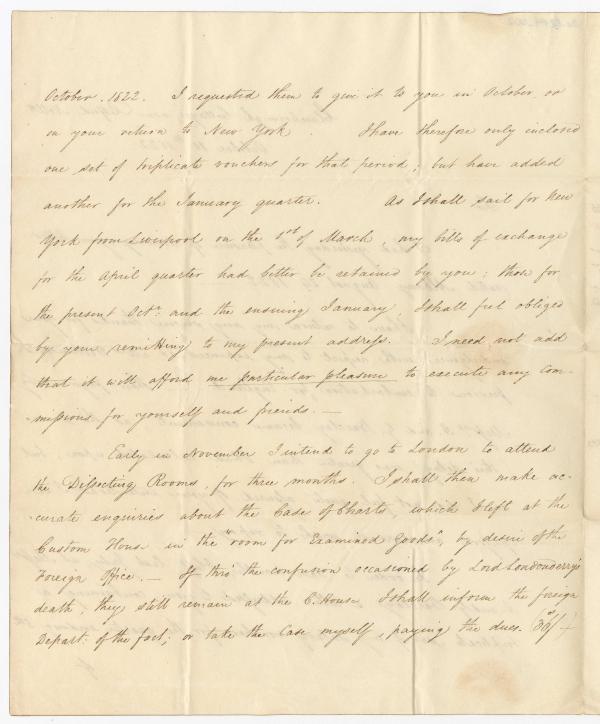 October. 1822. I requested them to give it to you in October or
on your return to New York. I have therefore only inclosed
one set of triplicate vouchers for that period; but have added
another for the January quarter. As I shall sail for New
York from Liverpool on the 1st of March, my bills of exchange
for the April quarter had better be retained by you: those for
the present Octr. and the ensuing January, I shall feel obliged
by your remitting to my present address. I need not add
that it will afford me particular pleasure to execute any com-
missions for yourself and friends. —
Early in November I intend to go to London to attend
the Dissecting Rooms, for three months. I shall then make ac-
-curate enquiries about the Case of Charts, which I left at the
Custom House in the "room for Examined Goods", by desire of the
Foreign Office. — If thro' the confusion occasioned by Lord Londonderry's
death, they still remain at the C. House I shall inform the foreign
Depart. of the fact; or take the Case myself, paying the dues.